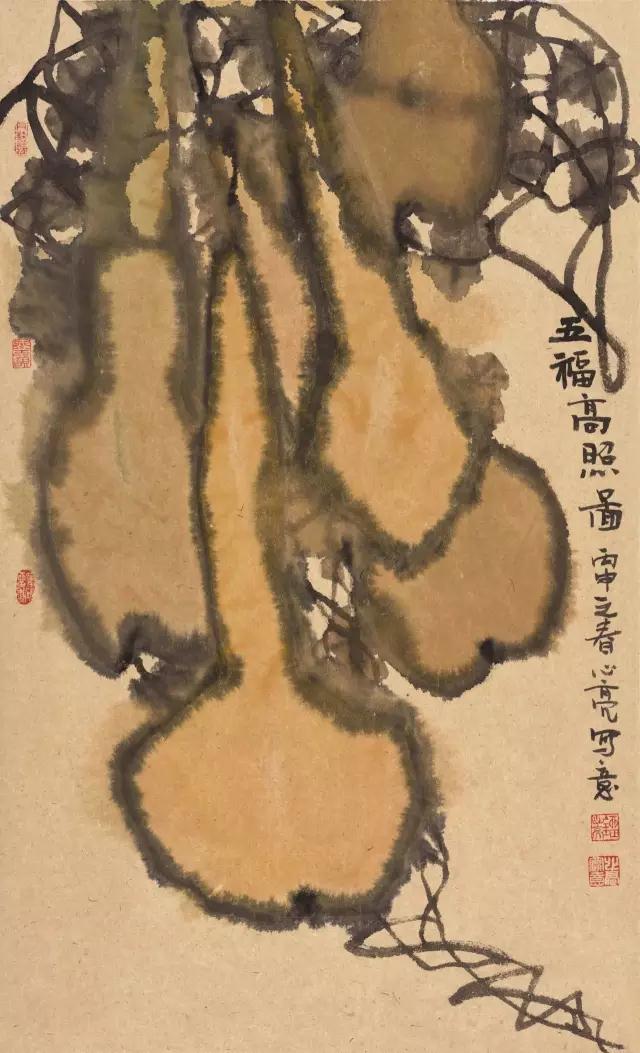 五福高照图
丙申之春心亮写意